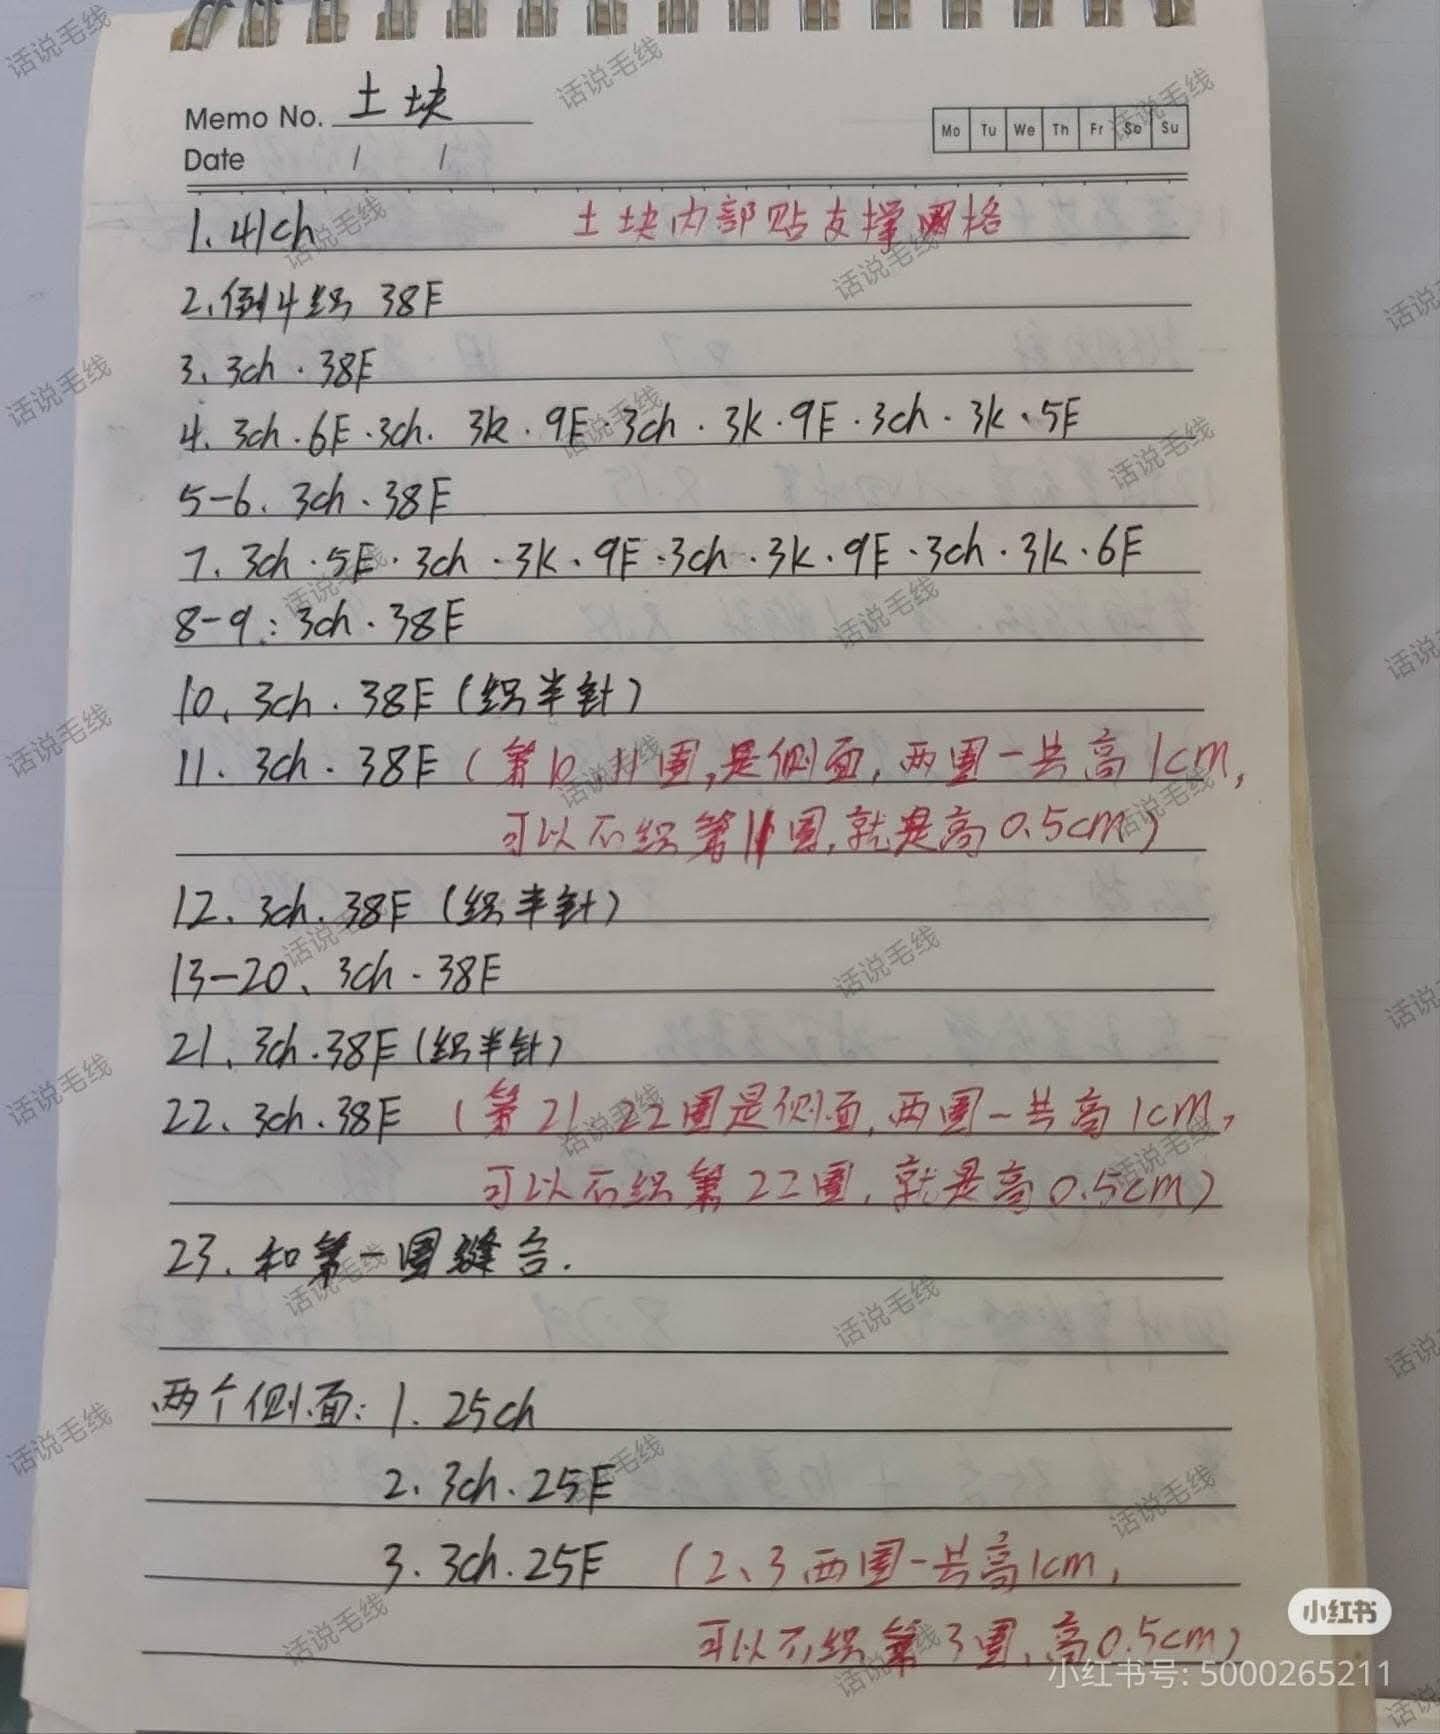 Memo No. 土块
Mo Tu We Th Fr Sa Su
Date / /
1、41ch
土块内部贴支撑网格
2、倒4织 38F
3、3ch·38F
4、3ch·6F·3ch·3k·9F·3ch·3k·9F·3ch·3k·5F
5-6、3ch·38F
7、3ch·5F·3ch·3k·9F·3ch·3k·9F·3ch·3k·6F
8-9:3ch·38F
10、3ch·38F(织半针)
11、3ch·38F(第10、11圈,是侧面,两圈一共高1cm,
可以不织第11圈,就是高0.5cm)
12、3ch·38F(织半针)
13-20、3ch·38F
21、3ch·38F(织半针)
22、3ch·38F(第21、22圈是侧面,两圈一共高1cm,
可以不织第22圈,就是高0.5cm)
23、和第一圈缝合.
两个侧面:1.25ch
2.3ch.25F
3.3ch.25F(2、3两圈一共高1cm,
可以不织第3圈,高0.5cm)
小红书
小红书号: 5000265211
话说毛线